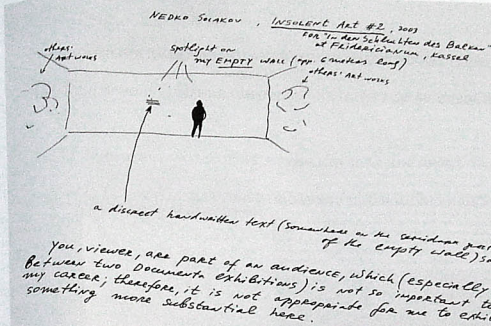 NEDKO SOLAKOV, INSOLENT ART #2, 2003
FOR "IN den SCHLUCHTEN des BALKAN"
at FRIDERICIANUM, KASSEL
others' ART WORKS
spotlight on
my EMPTY WALL (app. 6 meters long)
others' ART works
a discreet handwritten text (somewhere on the
of the empty wall)
you, viewer, are part of an audience, which (especially
Between two Documenta exhibitions) is not so important
my career; therefore, it is not appropriate for me to
something more substantial here.